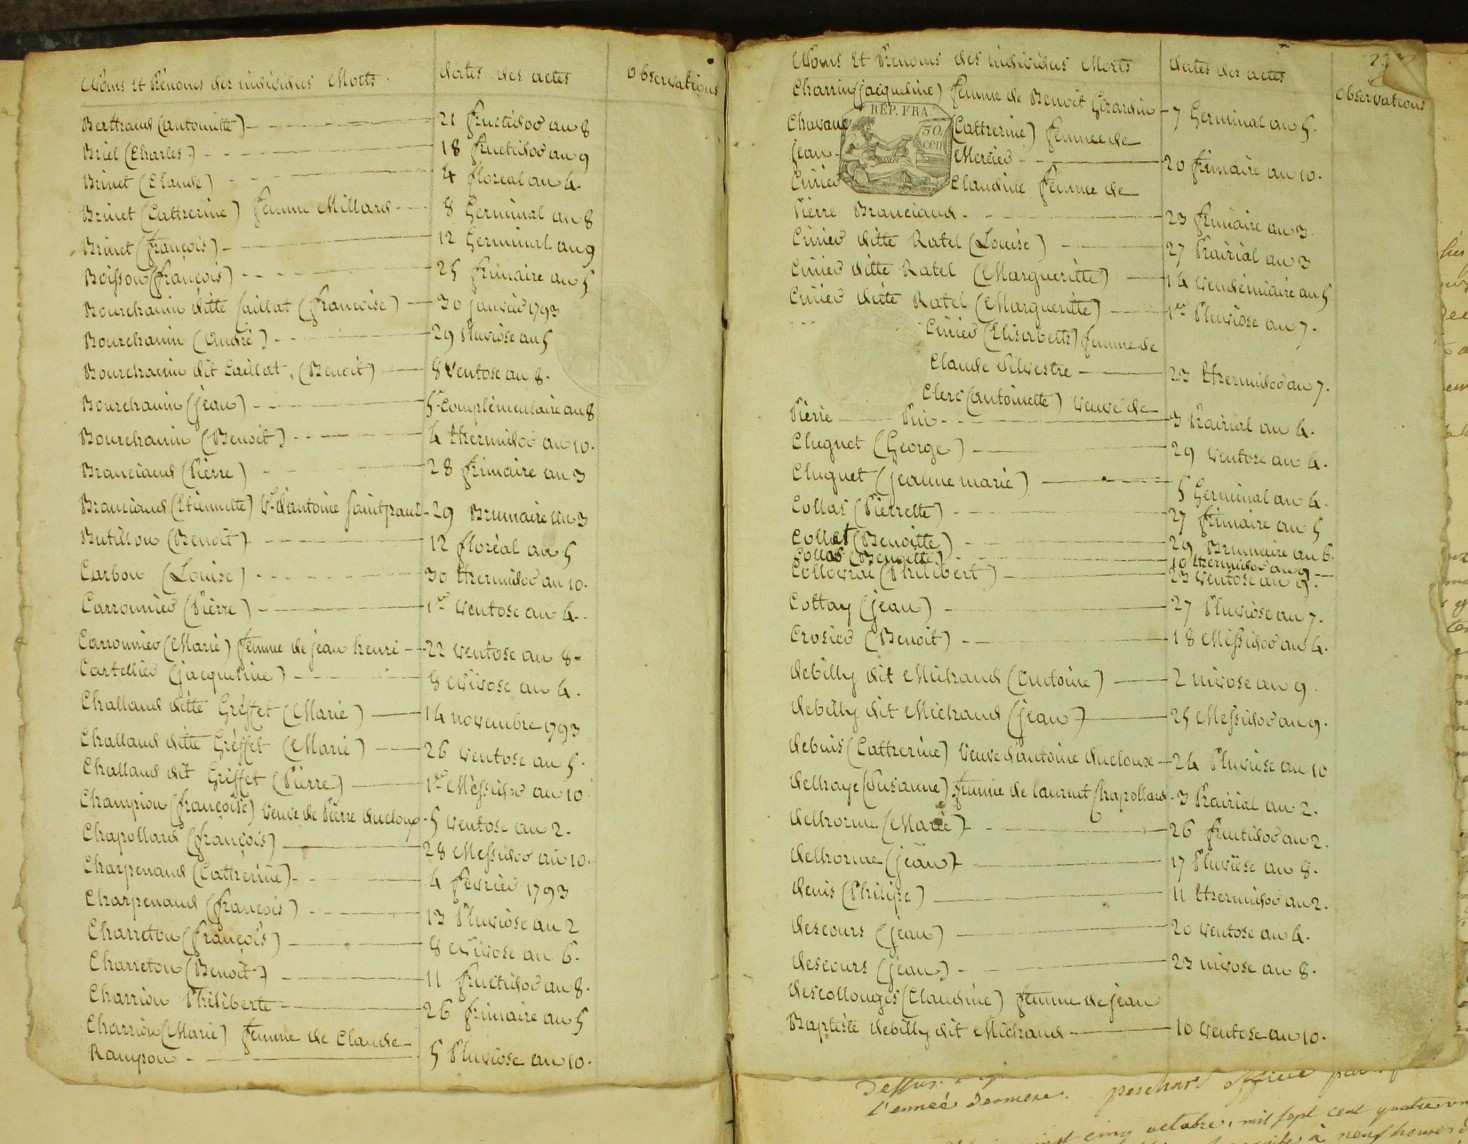 Noms et Prénoms des individus Morts.
dates des actes
Observations
Bertrand (antoinette) 21 fructidor an 8
Briel (Charles) 18 fructidor an 9
Brinet (Claude) 4 floreal an 4.
Brinet (Cattrerine) femme Millard 8 Germinal an 8
Brinet (françois) 12 Germinal an 9
Boisson (françois) 25 frimaire an 5
Bourchanin ditte Caillat (francoise) 30 janvier 1793
Bourchanin (André) 29 Pluviose an 5
Bourchanin dit Caillat, (Benoit) 8 Ventose an 8.
Bourchanin (jean) 5e Complémentaire an 8
Bourchanin (Benoit) 4 thermidor an 10.
Branciand (Pierre) 28 frimaire an 3
Branciand (Etiennette) Ve d'antoine Saintpaul 29 Brumaire an 3
Butillon (Benoit) 12 floréal an 5
Carbon (Louise) 30 thermidor an 10.
Carronnier (Pierre) 1er Ventose an 4.
Carronnier (Marie) femme de jean henri 22 Ventose an 8
Cartellier (jacqueline) 8 Nivose an 4.
Challand ditte Greffet (Marie) 14 novembre 1793
Challand ditte Greffet (Marie) 26 Ventose an 5.
Challand dit Greffet (Pierre) 1er Messidor an 10
Champion (françoise) veuve de Pierre ducloux 5 Ventose an 2.
Chapolland (françois) 28 Messidor an 10.
Charpenand (Catherine) 4 fevrier 1793
Charpenand (françois) 13 Pluviose an 2
Charreton (françois) 8 Nivose an 6.
Charreton (Benoit) 11 fructidor an 8.
Charrion Philiberte 26 frimaire an 5
Charrion (Marie) femme de Claude
Rampon 5 Pluviose an 10.
Noms et Prenoms des individus Morts
dates des actes
Observations
Charrin (jacqueline) femme de Benoit Girardin 7 Germinal an 5.
REP. FRA
50 cen
Chavane (Cattrerine) femme de
jean Mercier 20 frimaire an 10.
Civier Claudine femme de
Pierre Branciand 23 frimaire an 3
Civier ditte Ratel (Louise) 27 Prairial an 3
Civier ditte Ratel (Marguerite) 14 Vendémiaire an 5
Civier ditte Ratel (Marguerite) 1er Pluviose an 7.
Civier (Elisabeth) femme de
Claude Silvestre 23 thermidor an 7.
Clerc (antoinette) veuve de
Pierre 3 Prairial an 4.
Cluquet (George) 29 Ventose an 4.
Cluquet (jeanne marie) 5 Germinal an 4.
Collas (Pierrette) 27 frimaire an 5
Collat (Benoitte) 29 Brumaire an 6.
Collas (Benoitte) 10 thermidor an 9
Collovrai (Philibert) 23 Ventose an 9.
Cottay (jean) 27 Pluviose an 7.
Crosier (Benoit) 18 Messidor an 4.
debilly dit Michaud (Antoine) 2 nivose an 9.
debilly dit Michaud (jean) 25 Messidor an 9.
debuis (Cattrerine) Veuve d'antoine ducloux 24 Pluviose an 10
delhaye (Susanne) femme de laurent Chapolland 3 Prairial an 2.
delhorme (Marie) 26 fructidor an 2.
delhorme (jean) 17 Pluviose an 8.
denis (Philipe) 11 thermidor an 2.
descours (jean) 20 Ventose an 4.
descours (jean) 23 nivose an 8.
descollonges (Claudine) femme de jean
Baptiste debilly dit Michaud 10 Ventose an 10.
l'année derniere.
cinq octobre, mil sept cent quatre